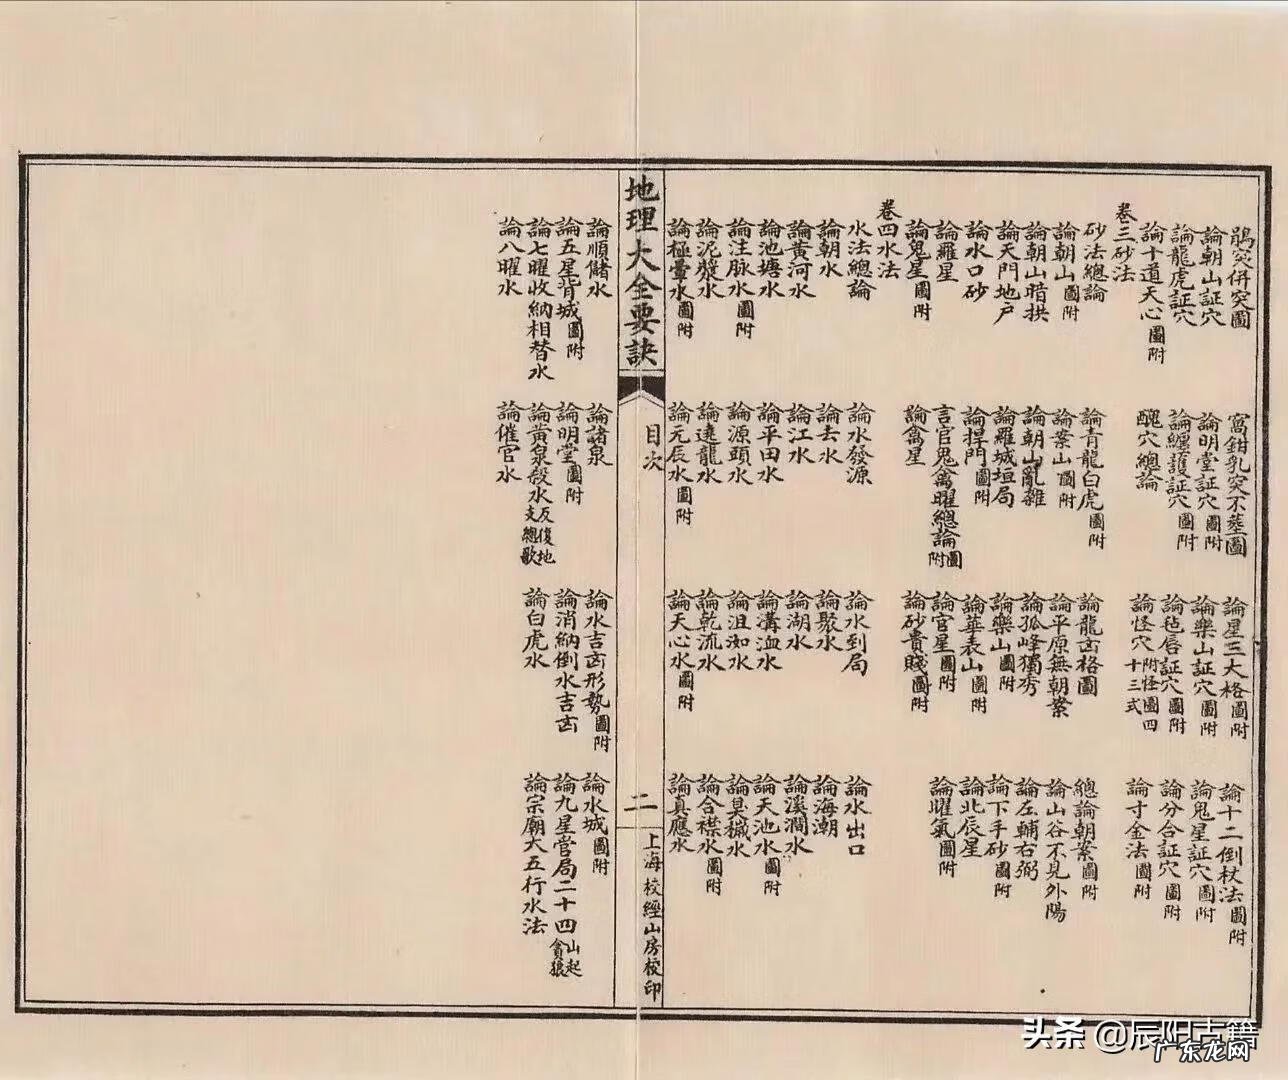 鵑突併突圖 窩鉗乳突不葬圖 論星三大格圖附 論十二倒杖法圖附
論朝山証穴 論明堂証穴圖附 論樂山証穴圖附 論鬼星証穴圖附
論龍虎証穴 論纏護証穴圖附 論毡唇証穴圖附 論分合証穴圖附
論十道天心圖附 醜穴總論 論怪穴附怪圖四十三式 論寸金法圖附
卷三砂法
砂法總論 論青龍白虎圖附 論龍凶格圖 總論朝案圖附
論朝山圖附 論案山圖附 論平原無朝案 論山谷不見外陽
論朝山暗拱 論朝山亂雜 論孤峰獨秀 論左輔右弼
論天門地戶 論羅城垣局 論樂山圖附 論下手砂圖附
論水口砂 論捍門圖附 論華表山圖附 論北辰星
論羅星 言官鬼禽曜總論圖附 論官星圖附 論曜氣圖附
論鬼星圖附 論禽星 論砂貴賤圖附
卷四水法
水法總論 論水發源 論水到局 論水出口
論朝水 論去水 論聚水 論海潮
論黃河水 論江水 論湖水 論溪澗水
論池塘水 論平田水 論溝洫水 論天池水圖附
論注脉水圖附 論源頭水 論沮洳水 論臭穢水
論泥漿水 論遠龍水 論乾流水 論合襟水圖附
論極暈水圖附 論元辰水圖附 論天心水圖附 論真應水
地理大全要訣 目次 二 上海校經山房校印
論順儲水 論諸泉 論水吉凶形勢圖附 論水城圖附
論五星背城圖附 論明堂圖附 論消納倒水吉凶 論九星營局二十四山起貪狼
論七曜收納相替水 論黃泉殺水反復地支總歌 論白虎水 論宗廟大五行水法
論八曜水 論催官水
头条 @辰阳古籍
广东龙网